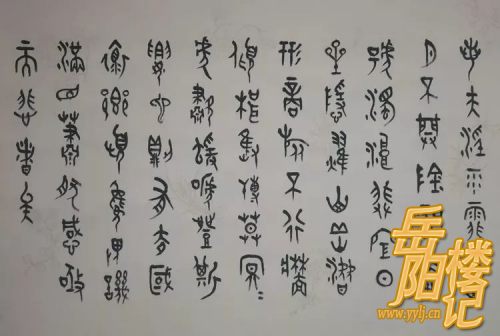 若夫淫雨霏
月不開陰
號濁浪排空日
星隱耀山岳潛
形商旅不行檣
傾楫摧薄暮冥〻
虎嘯猿啼登斯
樓也則有去國
懷鄉憂讒畏譏
滿目蕭然感極
而悲者矣
岳阳楼记
www.yylj.cn